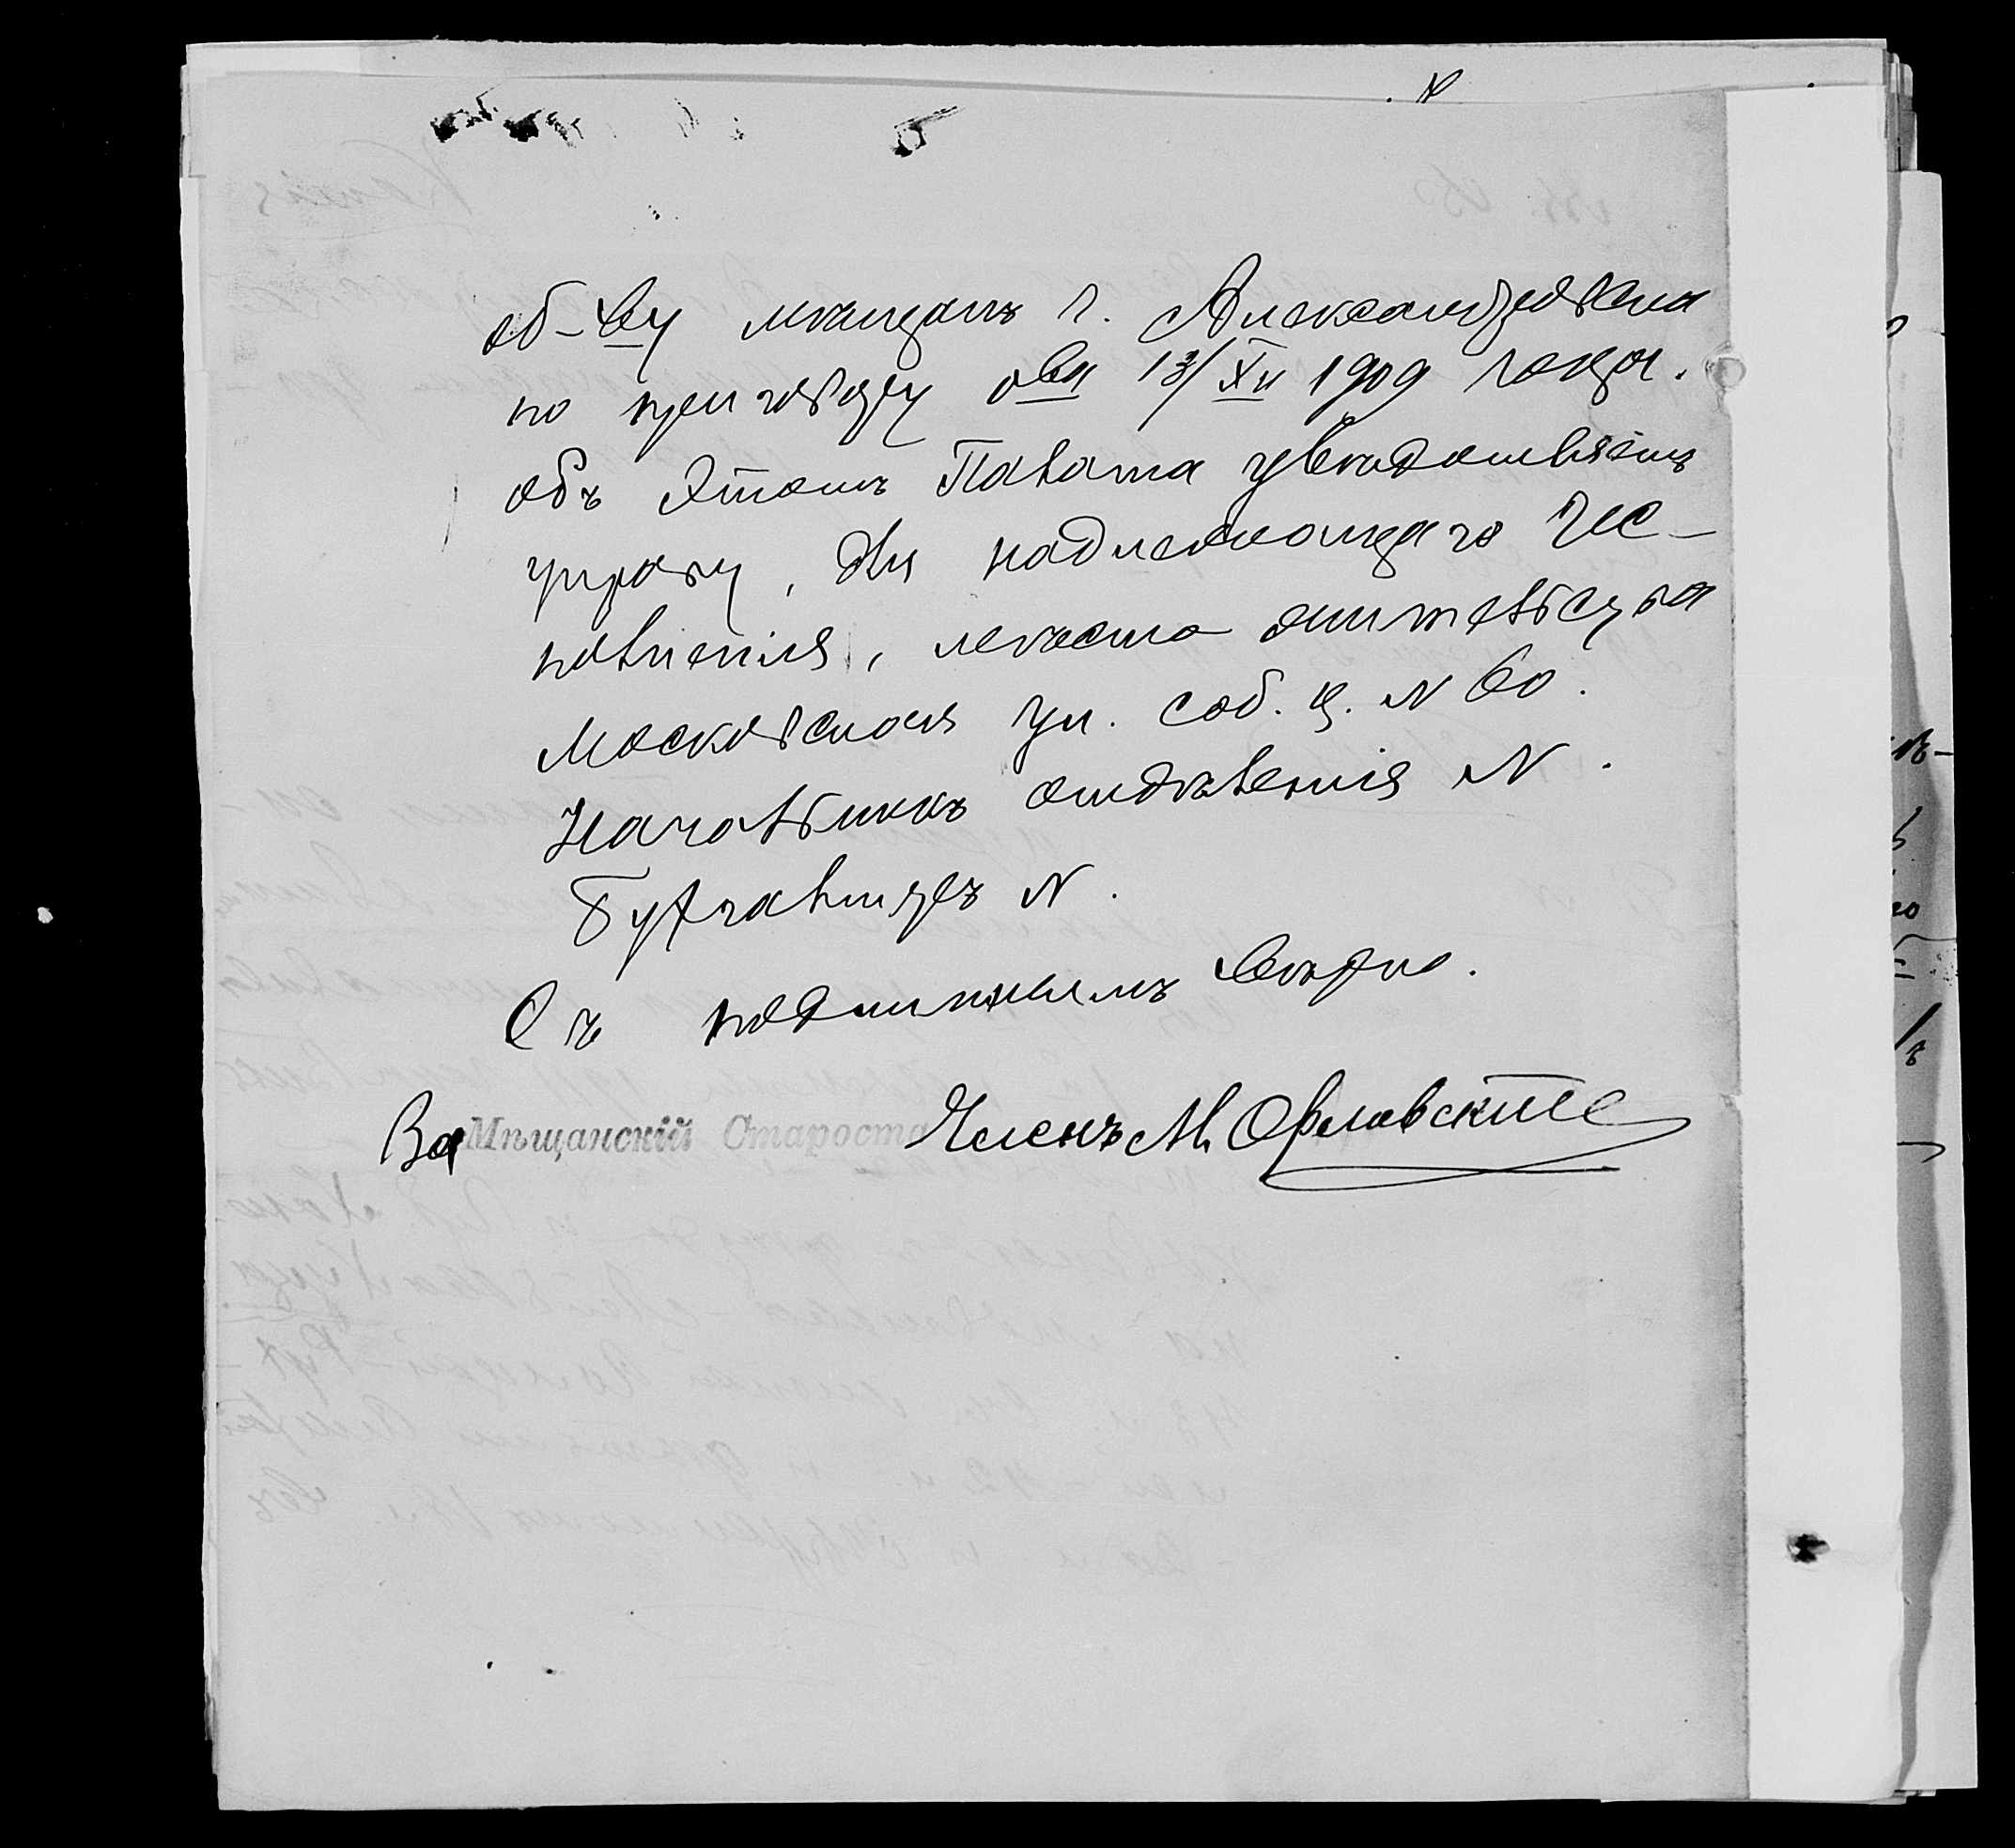 об-ву мѣщанъ г. Александровска
по приговору о-ва 13/XII 1909 года.
Объ этомъ Палата увѣдомляетъ
управу, для надлежащаго ис-
полненія, мѣсто жительства
Московская ул. соб. д. N 60.
Начальникъ отдѣленія N.
Бухгалтеръ N.
Съ подлиннымъ вѣрно.
За Мѣщанскій Староста Членъ М. Орловскій